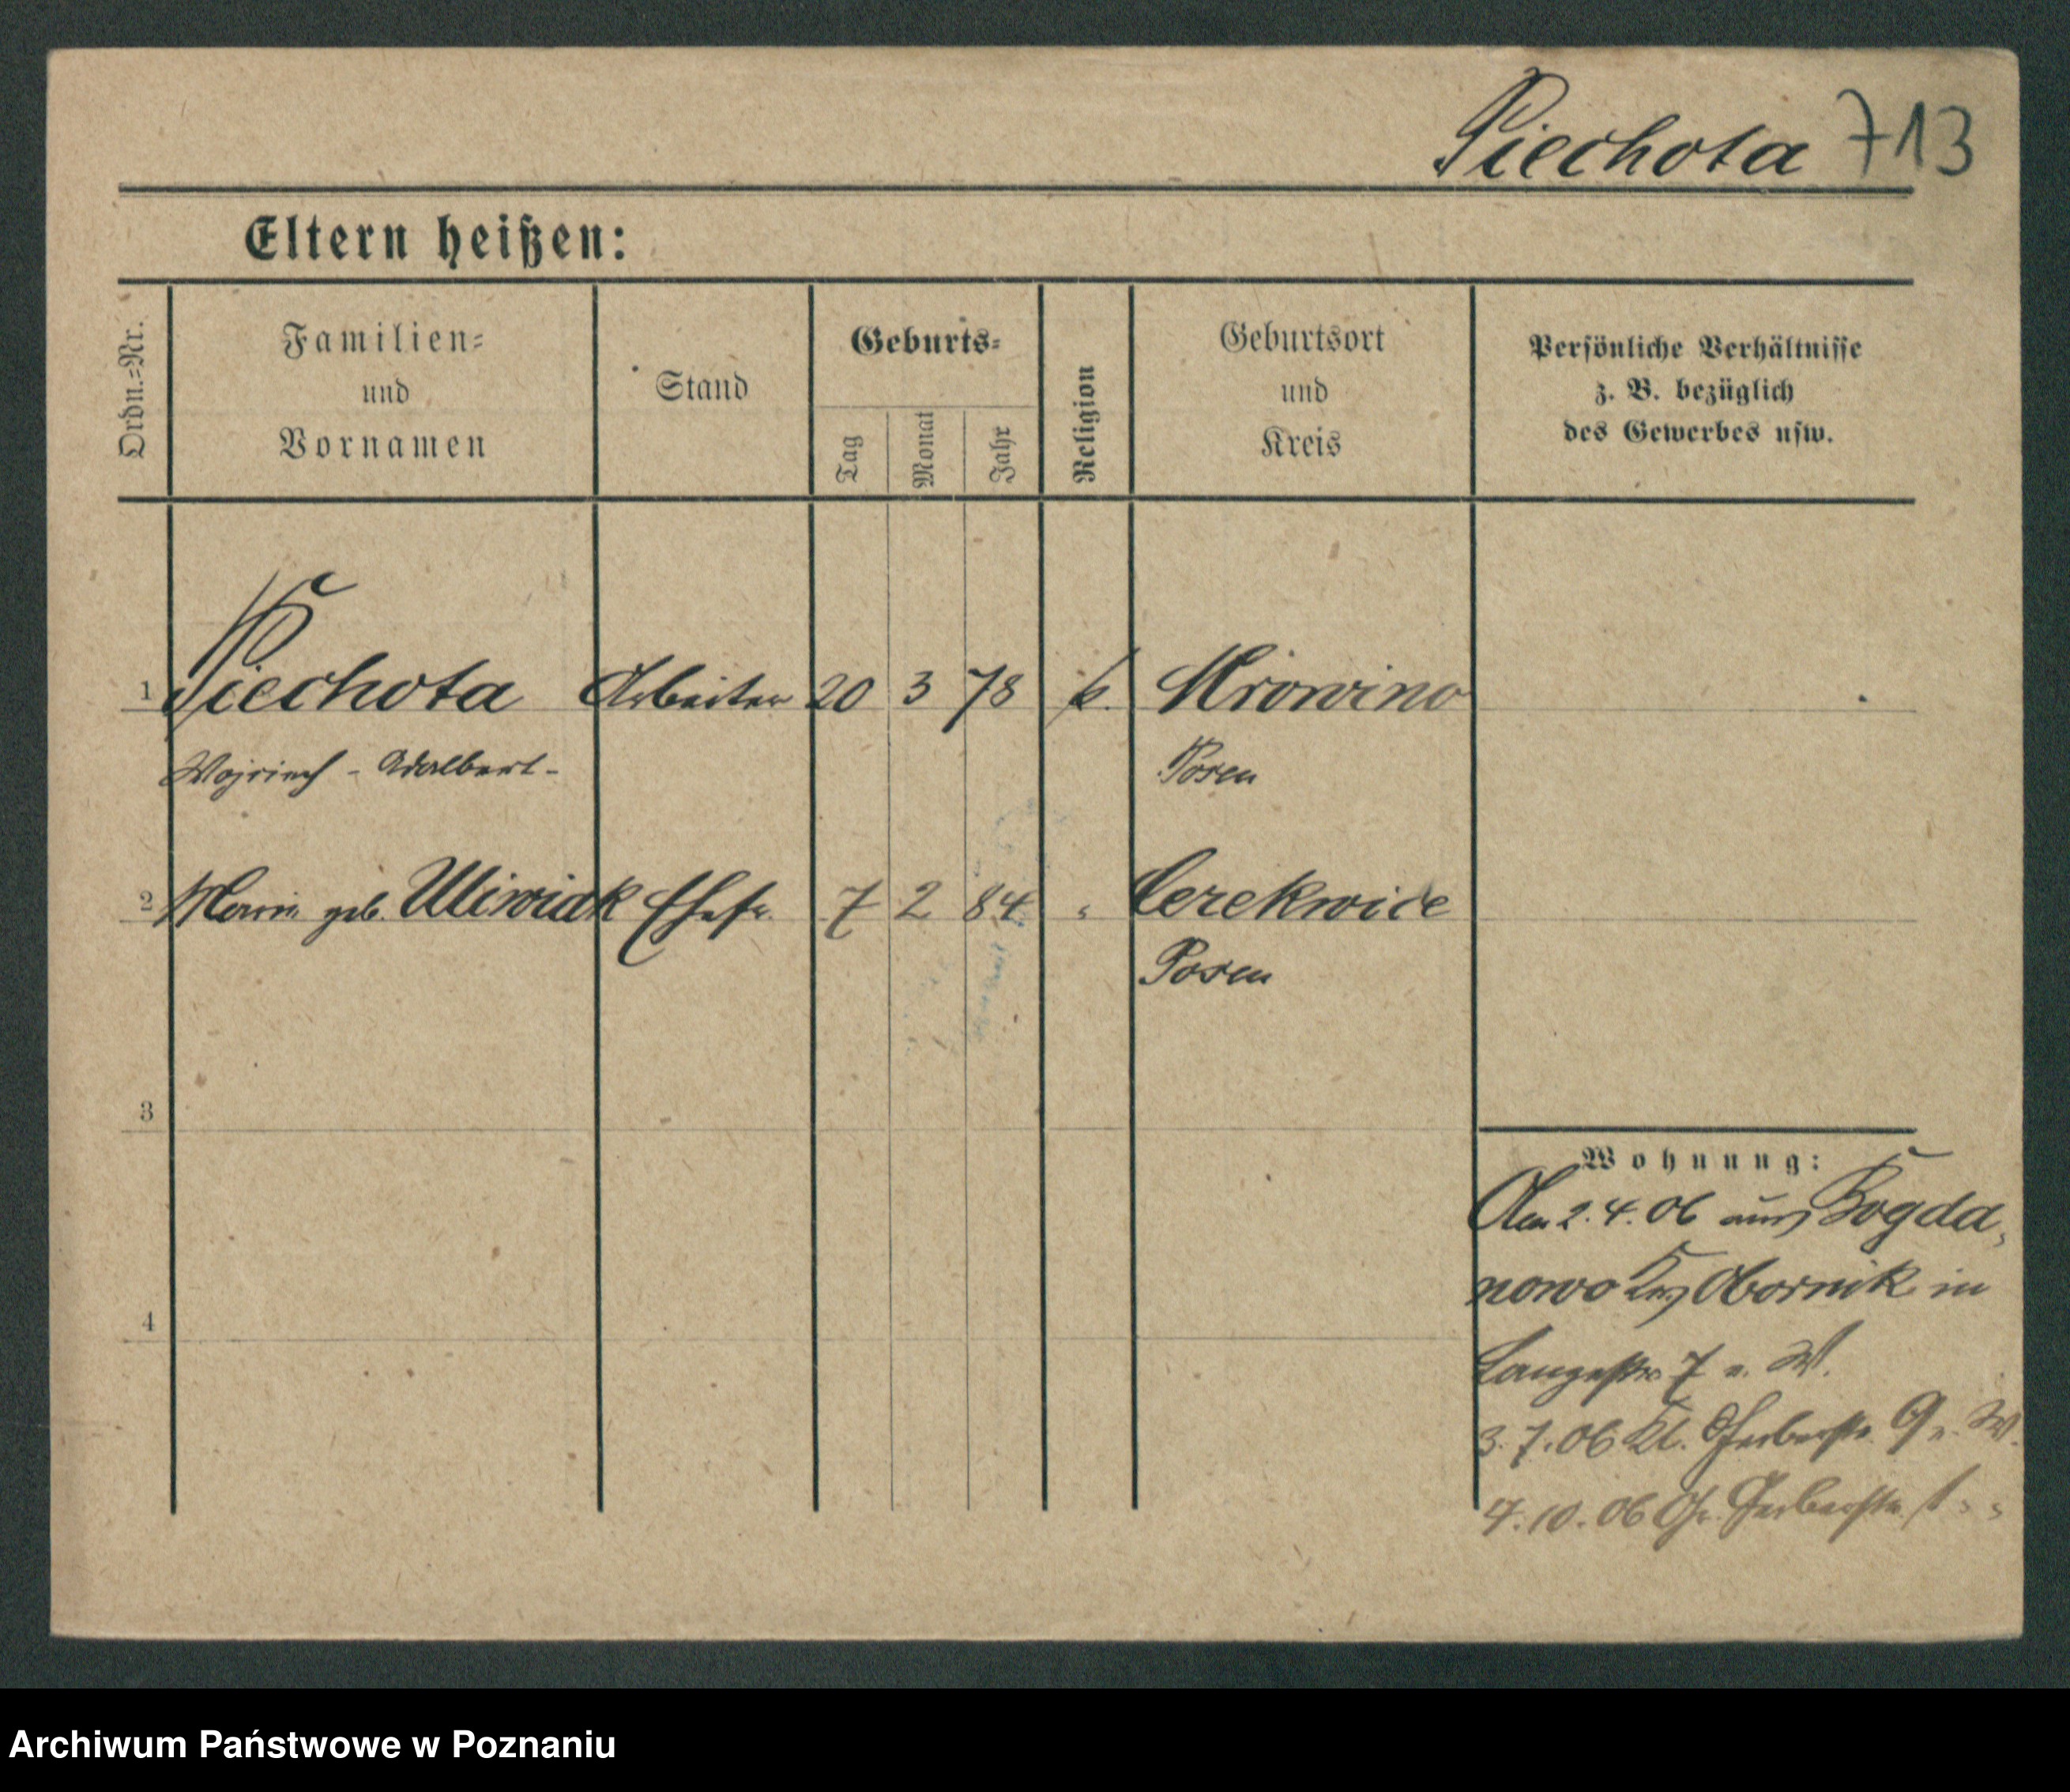 Piechota 713
Eltern heißen:
Ordn.=Nr.
Familien=
und
Vornamen
Stand
Geburts=
Tag
Monat
Jahr
Religion
Geburtsort
und
Kreis
Persönliche Verhältnisse
z. B. bezüglich
des Gewerbes usw.
1 Piechota Arbeiter 20 3 78 k. Mrowino
Wojciech - Adalbert - Posen
2 Marie geb. Uliwiak Ehefr. 7 2 84 " Cerekwice
Posen
3
4
Wohnung:
Am 2.4.06 aus Bogda„
nowo Krs Obornik in
Langestr 7 v. W.
3.7.06 Kl. Gerberstr. 9 v. W.
4.10.06 Gr. Gerberstr. 1 " "
Archiwum Państwowe w Poznaniu